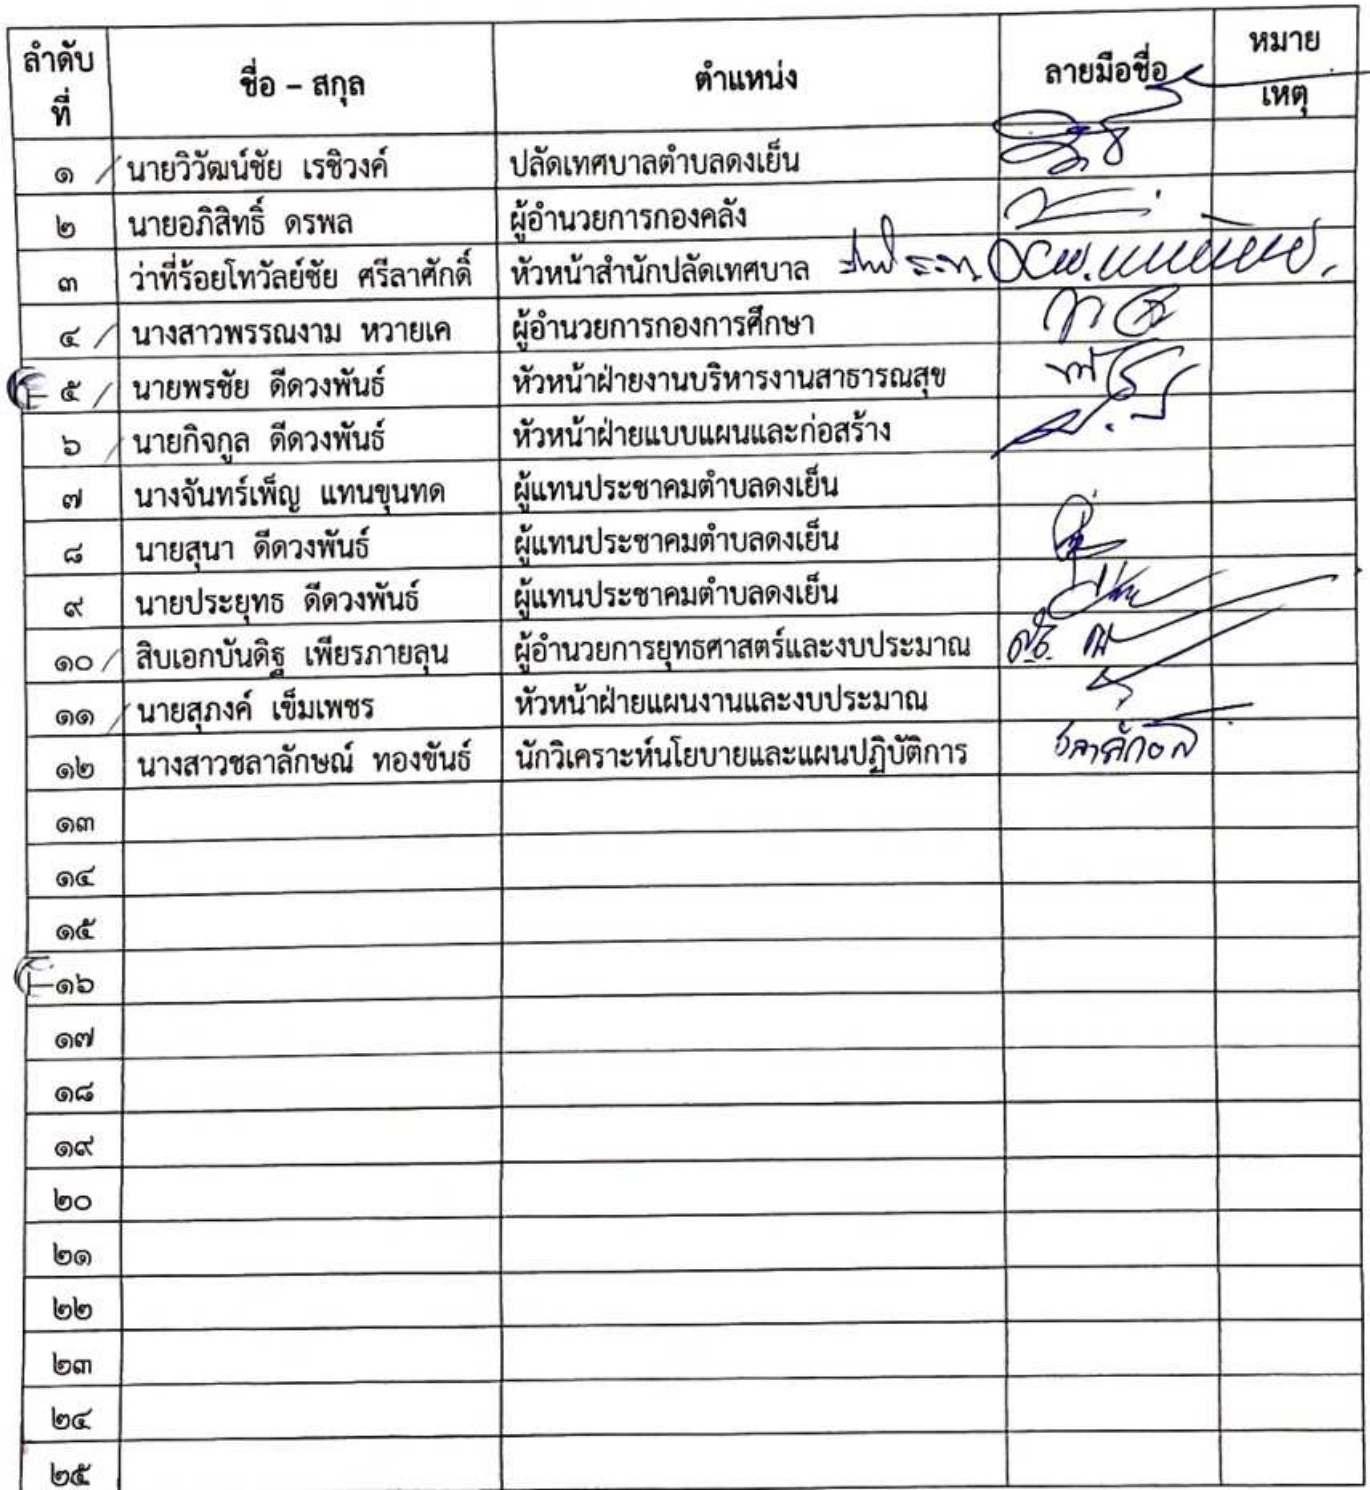 ลำดับ ชื่อ – สกุล ตำแหน่ง ลายมือชื่อ หมาย
ที่ เหตุ
๑ / นายวิวัฒน์ชัย เรชิวงค์ ปลัดเทศบาลตำบลดงเย็น
๒ นายอภิสิทธิ์ ดรพล ผู้อำนวยการกองคลัง
๓ ว่าที่ร้อยโทวัลย์ชัย ศรีลาศักดิ์ หัวหน้าสำนักปลัดเทศบาล
๔ / นางสาวพรรณงาม หวายเค ผู้อำนวยการกองการศึกษา
๕ / นายพรชัย ดีดวงพันธ์ หัวหน้าฝ่ายงานบริหารงานสาธารณสุข
๖ / นายกิจกูล ดีดวงพันธ์ หัวหน้าฝ่ายแบบแผนและก่อสร้าง
๗ นางจันทร์เพ็ญ แทนขุนทด ผู้แทนประชาคมตำบลดงเย็น
๘ นายสุนา ดีดวงพันธ์ ผู้แทนประชาคมตำบลดงเย็น
๙ นายประยุทธ ดีดวงพันธ์ ผู้แทนประชาคมตำบลดงเย็น
๑๐ / สิบเอกบันดิฐ เพียรภายลุน ผู้อำนวยการยุทธศาสตร์และงบประมาณ
๑๑ / นายสุภงค์ เข็มเพชร หัวหน้าฝ่ายแผนงานและงบประมาณ
๑๒ นางสาวชลาลักษณ์ ทองขันธ์ นักวิเคราะห์นโยบายและแผนปฏิบัติการ
๑๓
๑๔
๑๕
๑๖
๑๗
๑๘
๑๙
๒๐
๒๑
๒๒
๒๓
๒๔
๒๕